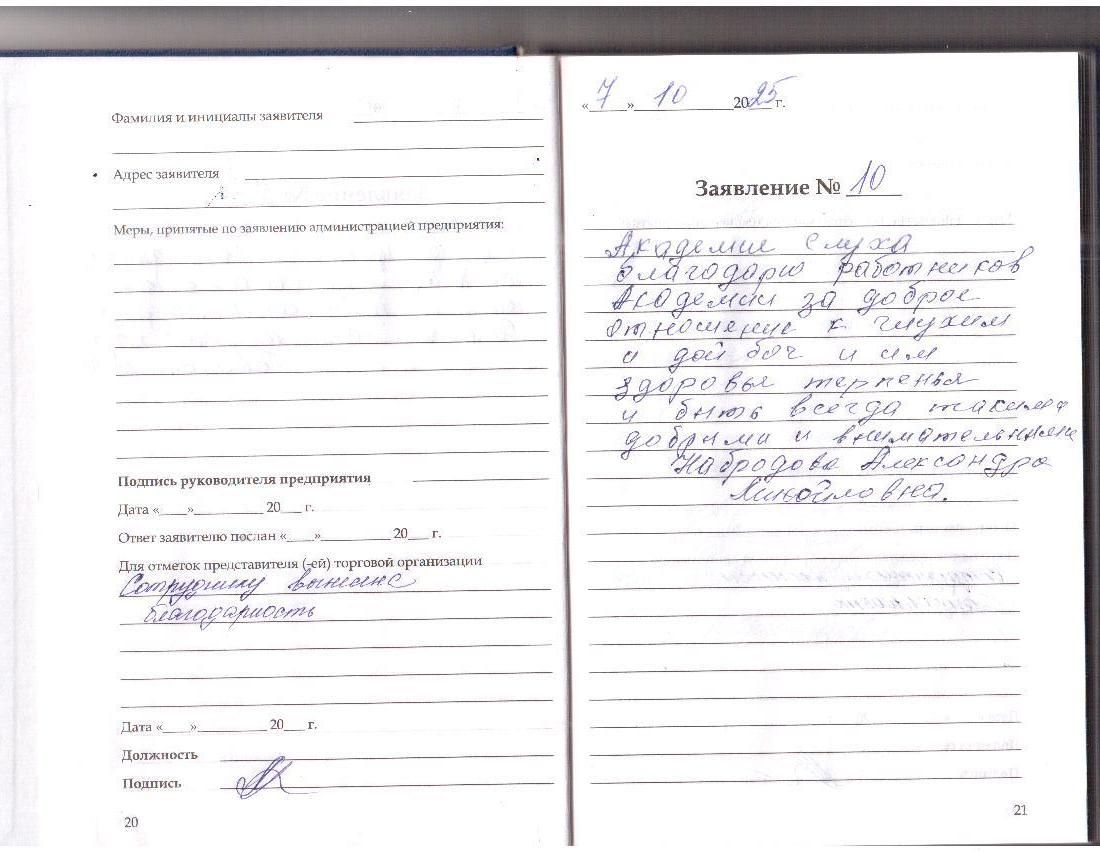 Фамилия и инициалы заявителя
Адрес заявителя
Меры, принятые по заявлению администрацией предприятия:
Подпись руководителя предприятия
Дата «___»__________ 20___ г.
Ответ заявителю послан «____»__________ 20___ г.
Для отметок представителя (-ей) торговой организации
Сотруднику вынесена
благодарность
Дата «____»__________ 20___ г.
Должность
Подпись
20
«7» 10 2025 г.
Заявление № 10
Академие слуха
благодарю работников
Академии за доброе
отношение к глухим
и дой боч и им
здоровья терпенья
и быть всегда такими
добрыми и внимательными
Набродова Александра
Михайловна.
21